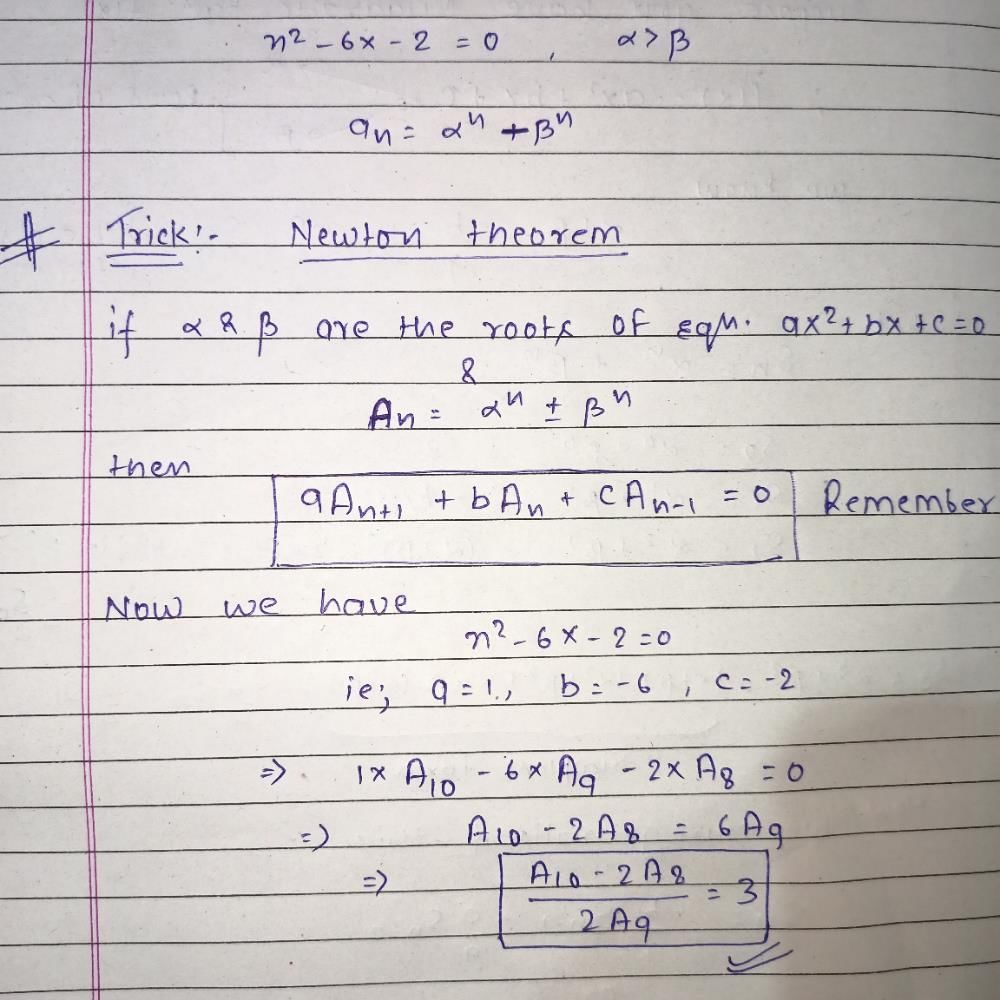 x² - 6x - 2 = 0 , α > β
aₙ = αⁿ + βⁿ
# Trick:- Newton theorem
if α & β are the roots of eqn. ax² + bx + c = 0
&
Aₙ = αⁿ ± βⁿ
then
aAₙ₊₁ + bAₙ + cAₙ₋₁ = 0 Remember
Now we have
x² - 6x - 2 = 0
ie; a = 1, b = -6, c = -2
⇒ 1 x A₁₀ - 6 x A₉ - 2 x A₈ = 0
⇒ A₁₀ - 2A₈ = 6A₉
⇒ A₁₀ - 2A₈ / 2A₉ = 3